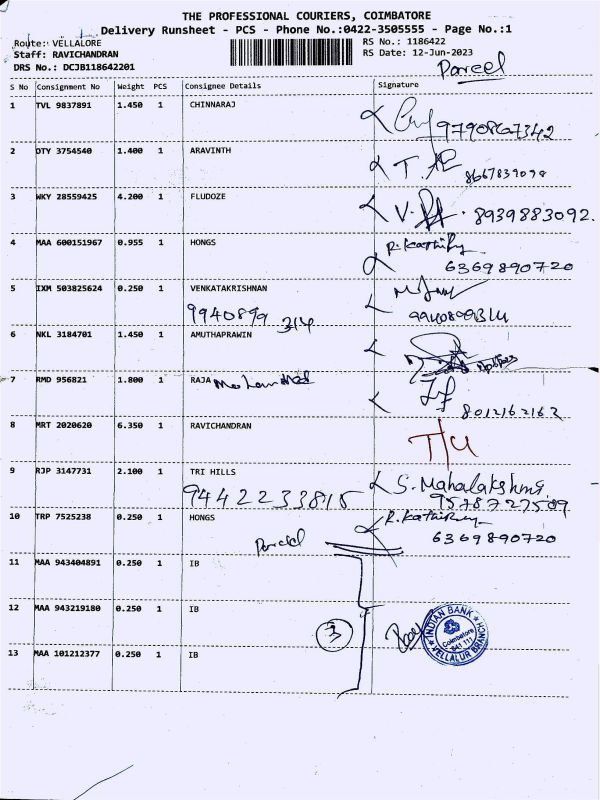 THE PROFESSIONAL COURIERS, COIMBATORE
Delivery Runsheet - PCS - Phone No.:0422-3505555 - Page No.:1
Route: VELLALORE RS No.: 1186422
Staff: RAVICHANDRAN RS Date: 12-Jun-2023
DRS No.: DCJB118642201
Parcel
S No Consignment No Weight PCS Consignee Details Signature
1 TVL 9837891 1.450 1 CHINNARAJ
9790867342
2 DTY 3754540 1.400 1 ARAVINTH
8667839098
3 WKY 28559425 4.200 1 FLUDOZE
8939883092.
4 MAA 600151967 0.955 1 HONGS R. Kathir
6369890720
5 IXM 503825624 0.250 1 VENKATAKRISHNAN
9940899 314 9940899314
6 NKL 3184701 1.450 1 AMUTHAPRAWIN
7 RMD 956821 1.800 1 RAJA Mohammed
8012162162
8 MRT 2020620 6.350 1 RAVICHANDRAN
9 RJP 3147731 2.100 1 TRI HILLS S. Mahalakshmi
9442233815 9578727589
10 TRP 7525238 0.250 1 HONGS
6369890720
Parcel
11 MAA 943404891 0.250 1 IB
12 MAA 943219180 0.250 1 IB
3
13 MAA 101212377 0.250 1 IB
INDIAN BANK
Coimbatore
641 111
VELLALUR BRANCH